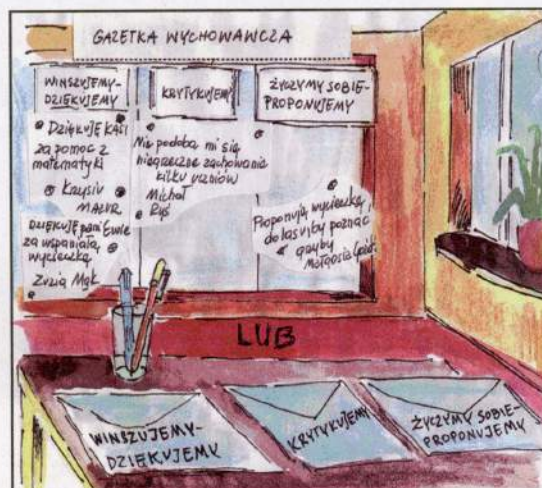 GAZETKA WYCHOWAWCZA
WINSZUJEMY-
DZIĘKUJEMY
KRYTYKUJEMY
ŻYCZYMY SOBIE-
PROPONUJEMY
Dziękuję Kasi
za pomoc z
matematyki
Krzysiu
MAZUR
DZIĘKUJĘ pani Ewie
za wspaniałą
wycieczkę
Zuzia Mąk
Nie podoba mi się
niegrzeczne zachowanie
kilku uczniów
Michał
Ryś
Proponuję wycieczkę
do lasu by poznać
grzyby
Małgosia
LUB
WINSZUJEMY-
DZIĘKUJEMY
KRYTYKUJEMY
ŻYCZYMY SOBIE-
PROPONUJEMY